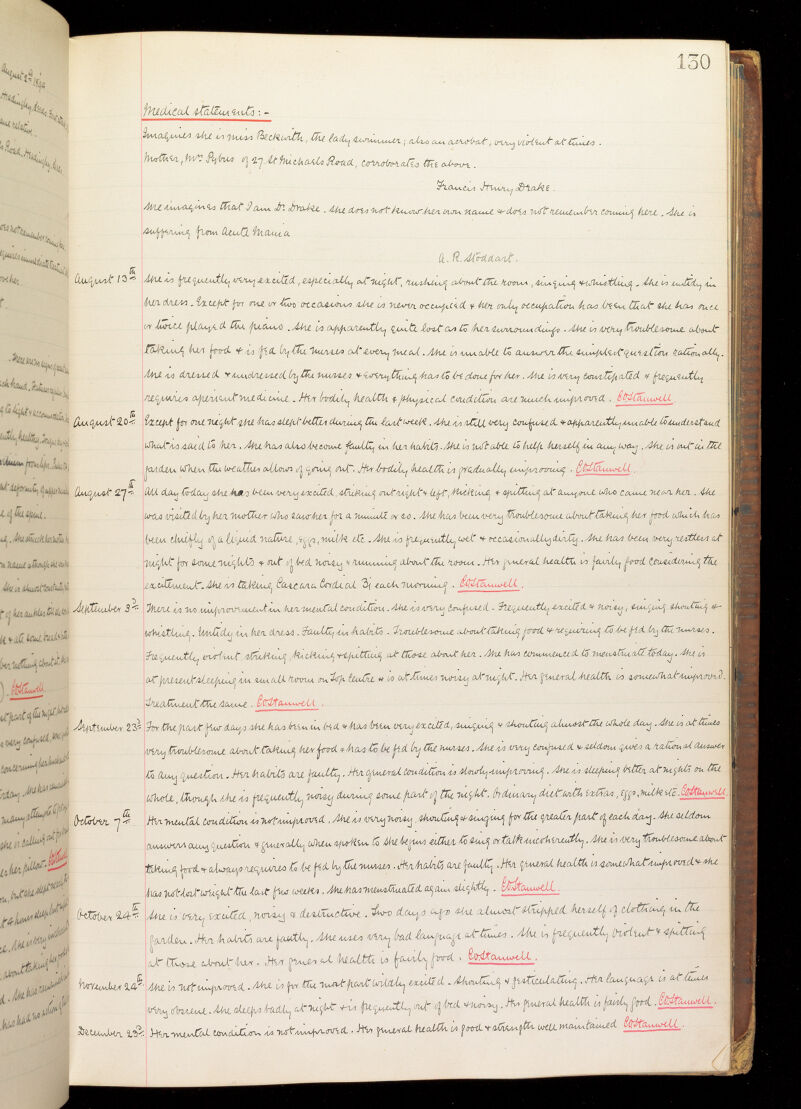 130
Medical statements :-
Imagines she is Miss Beckwith, the lady swimmer; also an acrobat, very violent at times.
Mother, Mrs Pybus of 27 St Michaels Road, corroborates the above.
Francis Henry Drake.
She imagines that I am Dr Drake. She does not know her own name & does not remember coming here. She is
suffering from Acute Mania
A. R. Stoddart.
August 13th She is frequently very excited, especially at night, rushing about the room, singing & whistling. She is untidy in
her dress. Except for one or two occasions she is never occupied & her only occupation has been that she has once
or twice played the piano. She is apparently quite lost as to her surroundings. She is very troublesome about
taking her food & is fed by the nurses at every meal. She is unable to answer the simplest question rationally.
She is dressed & undressed by the nurses & everything has to be done for her. She is very constipated & frequently
requires aperient medicine. Her bodily health & physical condition are much improved. COStanwell
August 20th Except for one night she has slept better during the last week. She is still very confused & apparently unable to understand
what is said to her. She has also become faulty in her habits. She is not able to help herself in any way. She is out in the
garden when the weather allows of going out. Her bodily health is gradually improving. COStanwell
August 27th All day today she has been very excited, striking out right & left, kicking & spitting at anyone who came near her. She
was visited by her mother who saw her for a minute or so. She has been very troublesome about taking her food which has
been chiefly of a liquid nature, eggs, milk etc. She is frequently wet & occasionally dirty. She has been very restless at
night for some nights & out of bed noisy & running about the room. Her general health is fairly good considering the
excitement. She is taking Cascara Cordial ʒj each morning. COStanwell.
September 3rd There is no improvement in her mental condition. She is very confused. Frequently excited & noisy, singing shouting &
whistling. Untidy in her dress. Faulty in habits. Troublesome about taking food & requiring to be fed by the nurses.
Frequently violent, striking, kicking & spitting at those about her. She has commenced to menstruate today. She is
at present sleeping in small room on Top Centre & is at times noisy at night. Her general health is somewhat improved.
Treatment the same. COStanwell.
September 23rd For the past few days she has been in bed & has been very excited, singing & shouting almost the whole day. She is at times
very troublesome about taking her food & has to be fed by the nurses. She is very confused & seldom gives a rational answer
to any question. Her habits are faulty. Her general condition is slowly improving. She is sleeping better at nights on the
whole, though she is frequently noisy during some part of the night. Ordinary diet with extras, eggs, milk etc. COStanwell
October 7th Her mental condition is not improved. She is very noisy, shouting & singing for the greater part of each day. She seldom
answers any question & generally when spoken to she begins either to sing or talk incoherently. She is very troublesome about
taking food & always requires to be fed by the nurses. Her habits are faulty. Her general health is somewhat improved & she
has not lost weight the last few weeks. She has menstruated again slightly. COStanwell.
October 24th She is very excited, noisy & destructive. Two days ago she almost stripped herself of clothing in the
garden. Her habits are faulty. She uses very bad language at times. She is frequently violent & spitting
at those about her. Her general health is fairly good. COStanwell.
November 24th She is not improved. She is for the most part wildly excited. Shouting & gesticulating. Her language is at times
very obscene. She sleeps badly at night & is frequently out of bed & noisy. Her general health is fairly good. COStanwell.
December 23rd Her mental condition is not improved. Her general health is good & strength well maintained COStanwell.